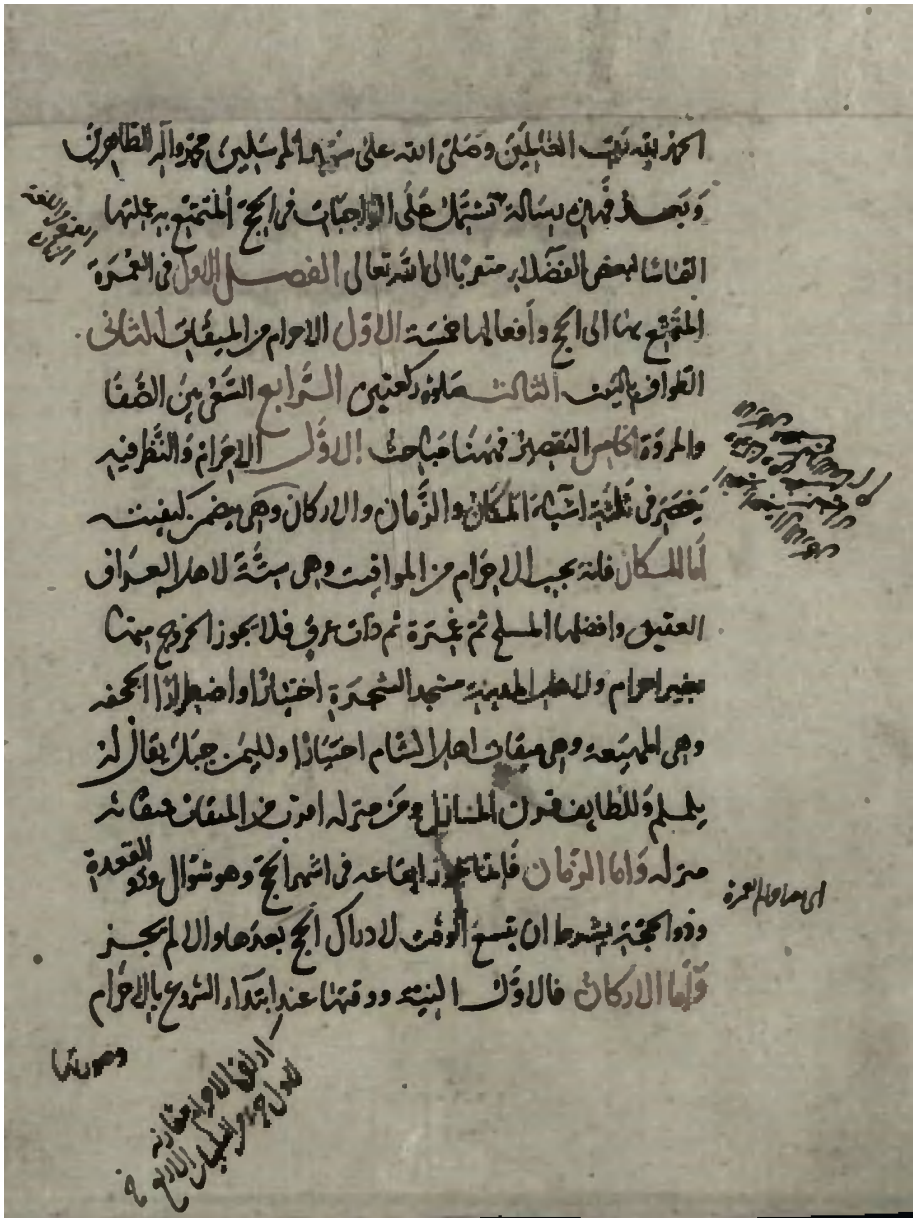 الحمد لله رب العالمين وصلى الله على سيد المرسلين محمد وآله الطاهرين
وبعد فهذه رسالة تشتمل على الواجبات في الحج المتمتع به عملتها
التماسا لبعض الفضلاء متقربا الى الله تعالى الفصل الاول في العمرة
المتمتع بها الى الحج وافعالها خمسة الاول الاحرام من الميقات الثاني
الطواف بالبيت الثالث صلوة ركعتين الرابع السعي بين الصفا
والمروة الخامس التقصير فههنا مباحث الاول الاحرام والنظر فيه
ينحصر في ثلثة اشياء المكان والزمان والاركان وهي كيفيته
اما المكان فانه يجب الاحرام من المواقيت وهي ستة لاهل العراق
العقيق وافضلها المسلح ثم غمرة ثم ذات عرق فلا يجوز الخروج منها
بغير احرام ولاهل المدينة مسجد الشجرة اختيارا واضطرارا الجحفه
وهي المهيعة وهي ميقات اهل الشام اختيارا ولليمن جبل يقال له
يلملم وللطايف قرن المنازل ومن منزله اقرب من الميقات ميقاته
منزله واما الزمان فانما يجوز ايقاعه في اشهر الحج وهو شوال وذو القعدة
وذو الحجة بشرط ان يتسع الوقت لادراك الحج بعدها والا لم يجز
واما الاركان فالاول النية ووقتها عند ابتداء الشروع بالاحرام
وصورتها